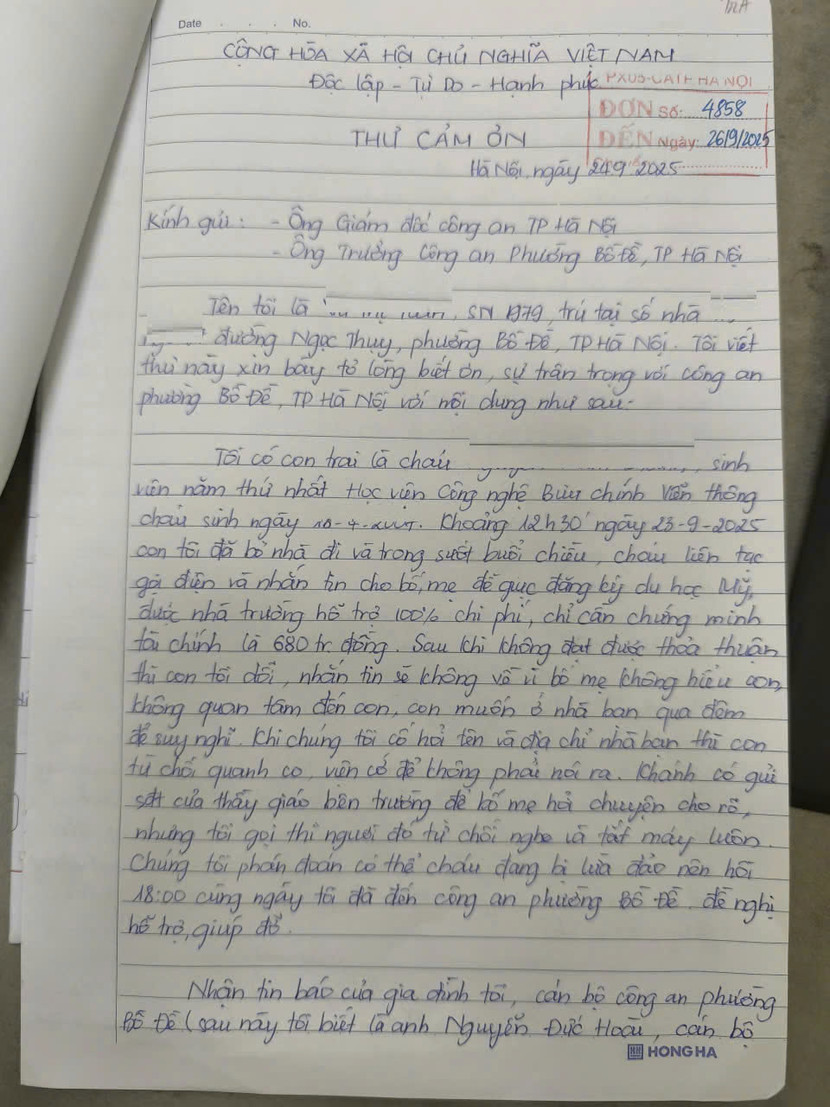 Date . . . No.
CỘNG HÒA XÃ HỘI CHỦ NGHĨA VIỆT NAM
Độc lập - Tự Do - Hạnh phúc
HA NOI
ĐƠN Số: 4858
ĐẾN Ngày: 26/9/2025
THƯ CẢM ƠN
Hà Nội, ngày 24.9.2025
Kính gửi: - Ông Giám đốc công an TP Hà Nội
- Ông Trưởng Công an Phường Bồ Đề, TP Hà Nội
Tên tôi là SN 1979, trú tại số nhà
đường Ngọc Thụy, phường Bồ Đề, TP Hà Nội. Tôi viết
thư này xin bày tỏ lòng biết ơn, sự trân trọng với công an
phường Bồ Đề, TP Hà Nội với nội dung như sau:
Tôi có con trai là cháu , sinh
viên năm thứ nhất Học viện Công nghệ Bưu chính Viễn thông
cháu sinh ngày Khoảng 12h30 ngày 23-9-2025
con tôi đã bỏ nhà đi và trong suốt buổi chiều, cháu liên tục
gọi điện và nhắn tin cho bố, mẹ để giục đăng ký du học Mỹ,
được nhà trường hỗ trợ 100% chi phí, chỉ cần chứng minh
tài chính là 680 tr. đồng. Sau khi không đạt được thỏa thuận
thì con tôi dỗi, nhắn tin sẽ không về vì bố mẹ không hiểu con,
không quan tâm đến con, con muốn ở nhà bạn qua đêm
để suy nghĩ. Khi chúng tôi cố hỏi tên và địa chỉ nhà bạn thì con
từ chối quanh co, viện cớ để không phải nói ra. Khánh có gửi
sđt của thầy giáo bên trường để bố mẹ hỏi chuyện cho rõ,
nhưng tôi gọi thì người đó từ chối nghe và tắt máy luôn.
Chúng tôi phán đoán có thể cháu đang bị lừa đảo nên hồi
18:00 cùng ngày tôi đã đến công an phường Bồ Đề đề nghị
hỗ trợ, giúp đỡ.
Nhận tin báo của gia đình tôi, cán bộ công an phường
Bồ Đề (sau này tôi biết là anh Nguyễn Đức Hoài, cán bộ
HONG HA